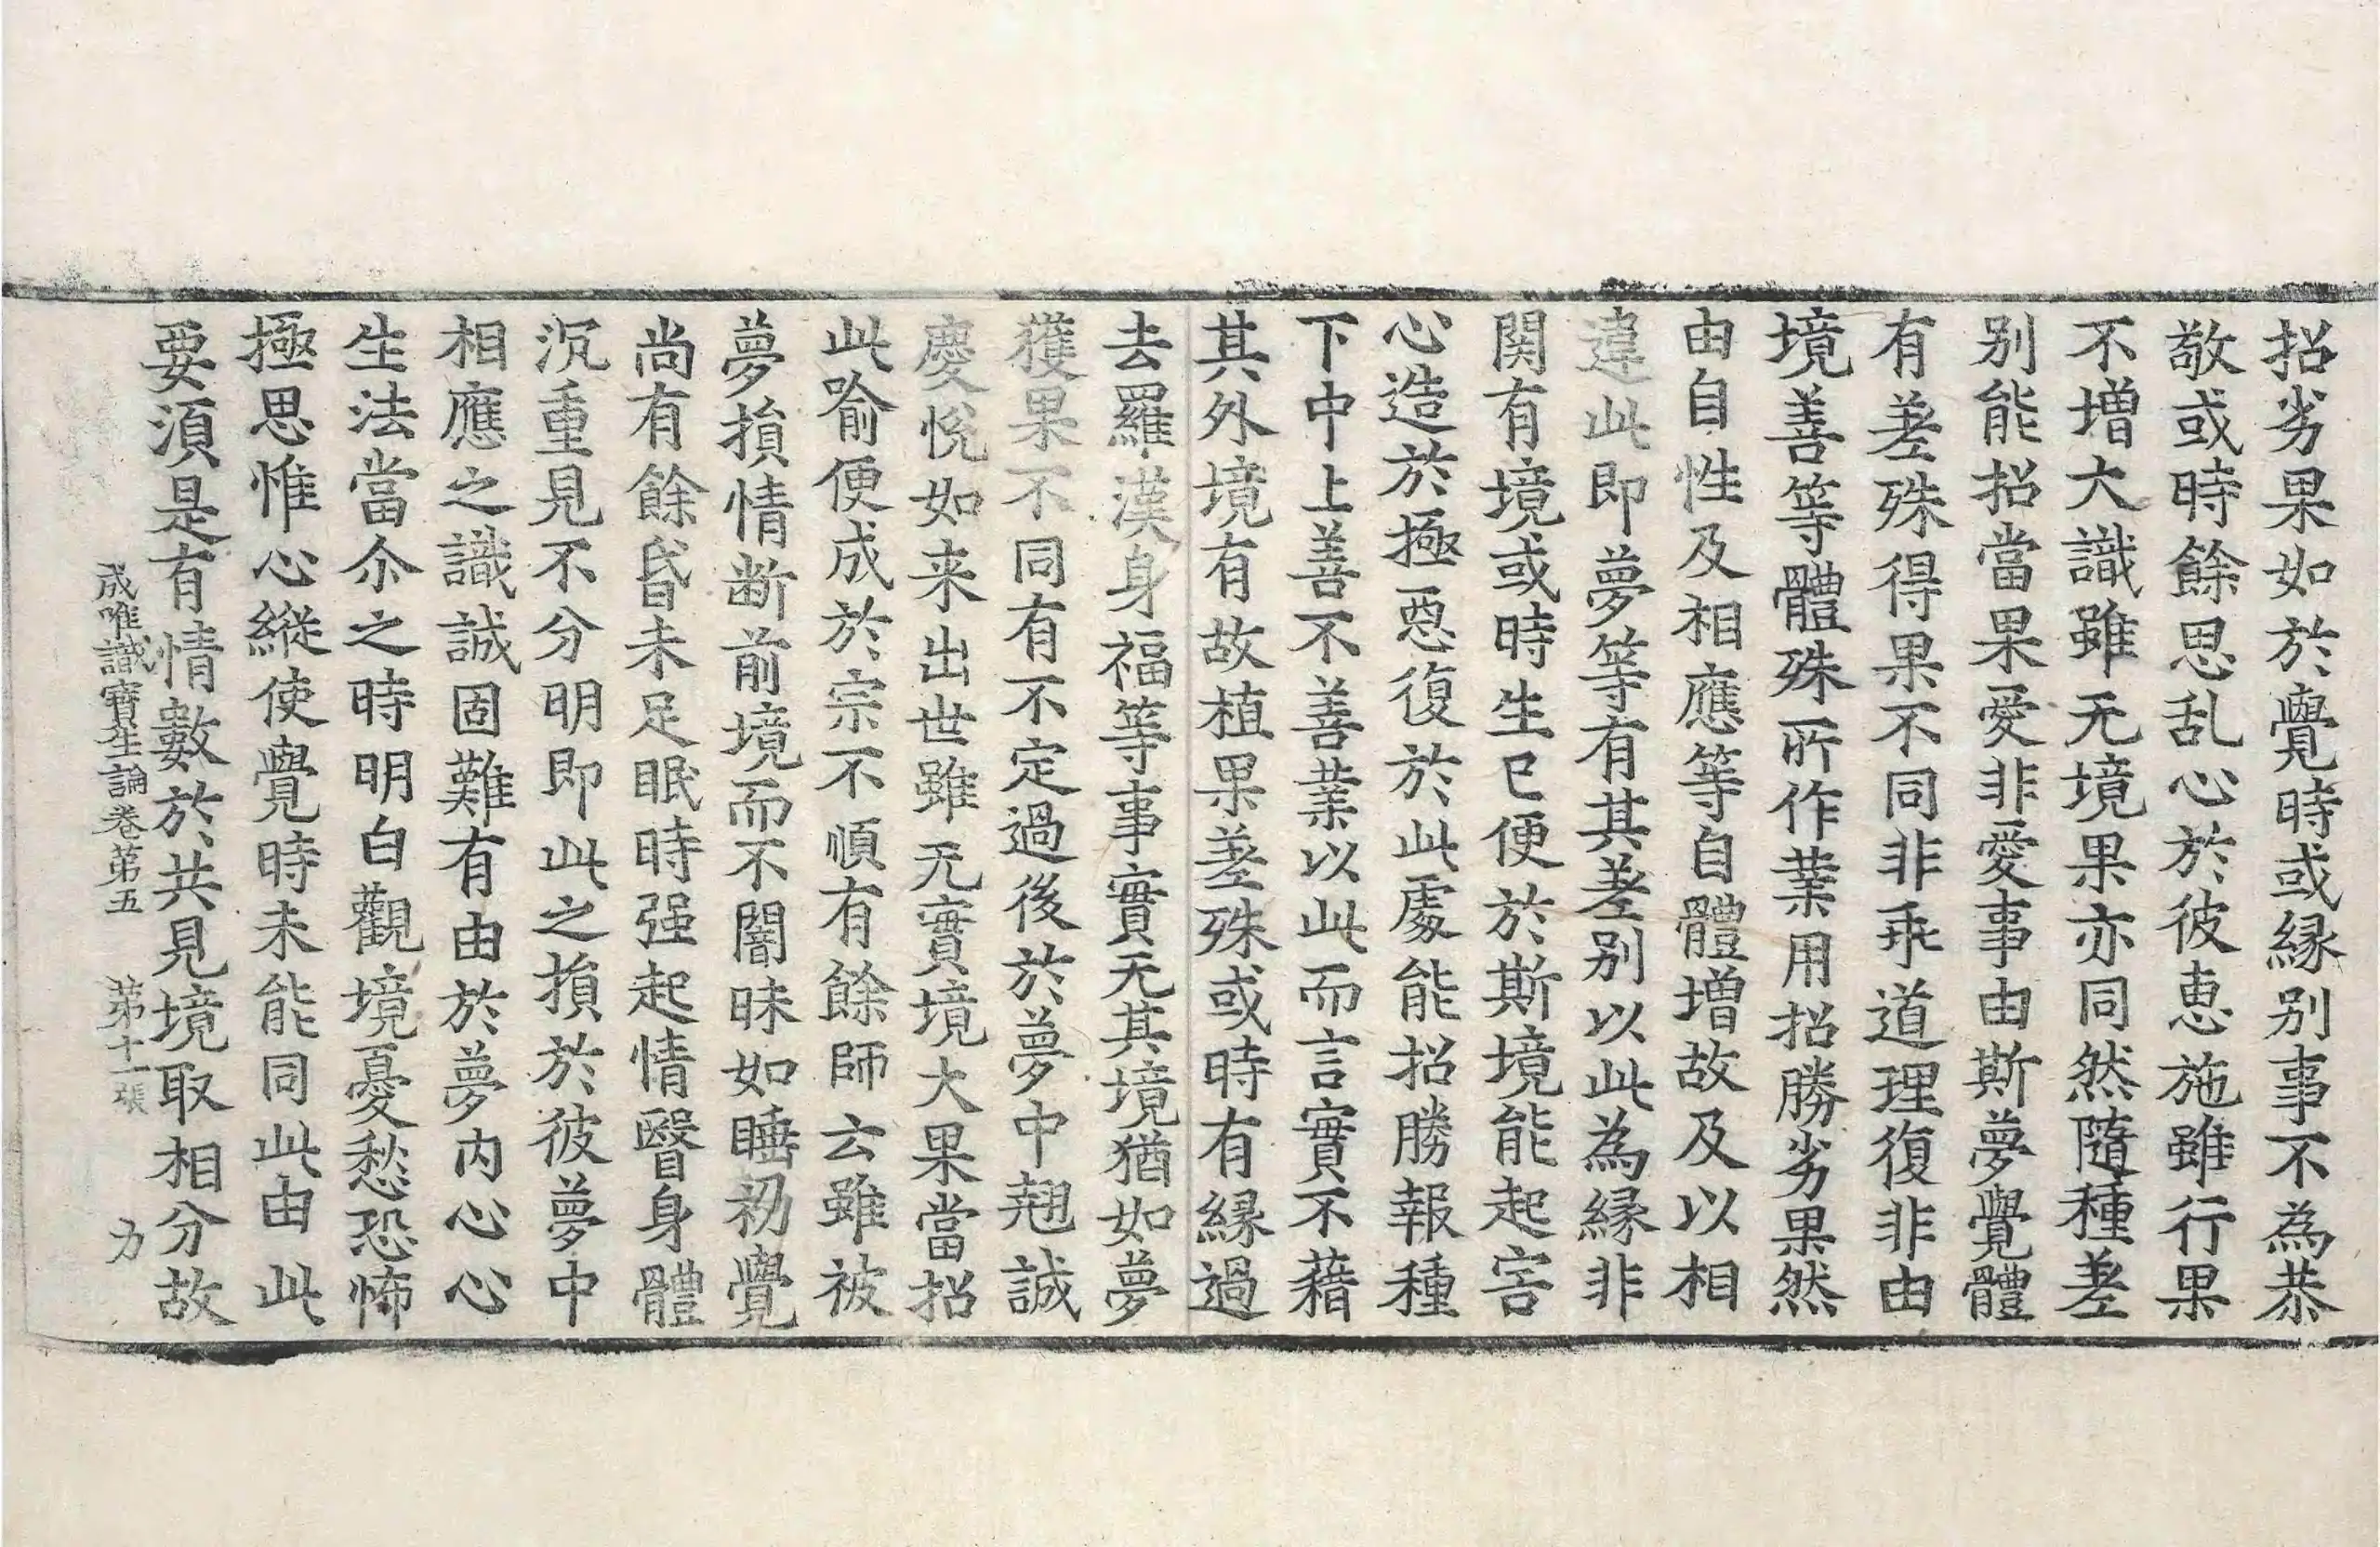 招劣果如於覺時或縁别事不為恭
敬或時餘思乱心於彼恵施雖行果
不增大識雖无境果亦同然隨種差
别能招當果愛非愛事由斯夢覺體
有差殊得果不同非乖道理復非由
境善等體殊所作業用招勝劣果然
由自性及相應等自體增故及以相
違此即夢等有其差别以此為縁非
関有境或時生已便於斯境能起害
心造於極惡復於此處能招勝報種
下中上善不善業以此而言實不藉
其外境有故植果差殊或時有縁過
去羅漢身福等事實无其境猶如夢
獲果不同有不定過後於夢中翹誠
慶悅如来出世雖无實境大果當招
此喻便成於宗不順有餘師云雖被
夢損情断前境而不闇昧如睡初覺
尚有餘昏未足眠時强起情瞖身體
沉重見不分明即此之損於彼夢中
相應之識誠固難有由於夢内心心
生法當尒之時明白觀境憂愁恐怖
極思惟心縱使覺時未能同此由此
要須是有情數於共見境取相分故
成唯識寶生論卷第五　第十一張　力